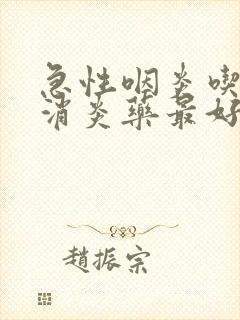 急性咽炎喫
消炎藥最好
趙振宗